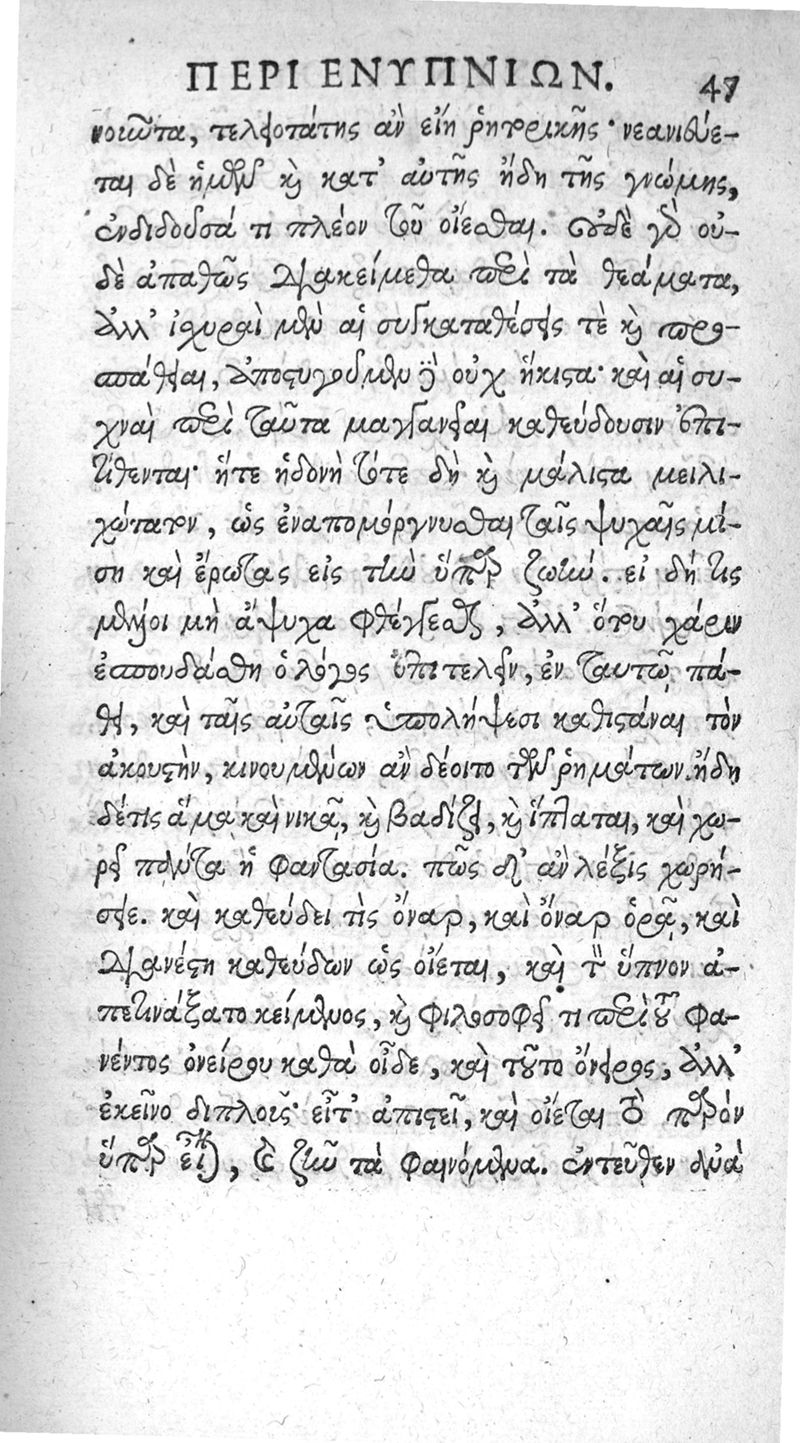 ΠΕΡΙ ΕΝΥΠΝΙΩΝ. 47
νοιῶτα, τελεοτάτης ἂν εἴη ῥητορικῆς· νεανιεύε-
ται δὲ ἡμῶν καὶ κατ' αὐτῆς ἤδη τῆς γνώμης,
ἐνδιδοῦσά τι πλέον τοῦ οἴεσθαι. οὐδὲ γὰρ οὐ-
δὲ ἀπαθῶς διακείμεθα περὶ τὰ θεάματα,
ἀλλ' ἰσχυραὶ μὲν αἱ συγκαταθέσεις τὲ καὶ προσ-
πάθειαι, ἀποστυγοῦμεν δὲ οὐχ ἥκιστα· καὶ αἱ συ-
χναὶ περὶ ταῦτα μαγγανεῖαι καθεύδουσιν ἐπι-
τίθενται· ἥτε ἡδονὴ τότε δὴ καὶ μάλιστα μειλι-
χώτατον, ὡς ἐναπομόργνυσθαι ταῖς ψυχαῖς μί-
ση καὶ ἔρωτας εἰς τὴν ὕπαρ ζωήν. εἰ δή τις
μέλλοι μὴ ἄψυχα φθέγξεσθαι, ἀλλ' ὅτου χάριν
ἐσπουδάσθη ὁ λόγος ἐπιτελεῖν, ἐν ταυτῷ πά-
θει, καὶ ταῖς αὐταῖς ὑπολήψεσι καθιστάναι τὸν
ἀκουστὴν, κινουμένων ἂν δέοιτο τῶν ῥημάτων. ἤδη
δέ τις ἅμα καὶ νικᾷ, καὶ βαδίζει, καὶ ἵπταται, καὶ χω-
ρεῖ πάντα ἡ φαντασία. πῶς δ' ἂν λέξις χωρή-
σειε. καὶ καθεύδει τὶς ὄναρ, καὶ ὄναρ ὁρᾷ, καὶ
διανέστη καθεύδων ὡς οἴεται, καὶ τὸν ὕπνον ἀ-
πετινάξατο κείμενος, καὶ φιλοσοφεῖ τι περὶ τοῦ φα-
νέντος ὀνείρου καθὰ οἶδε, καὶ τοῦτο ὄνειρος, ἀλλ'
ἐκεῖνο διπλοῦς· εἶτ' ἀπιστεῖ, καὶ οἴεται τὸ παρὸν
ὕπαρ εἶναι, καὶ ζῆν τὰ φαινόμενα. ἐντεῦθεν